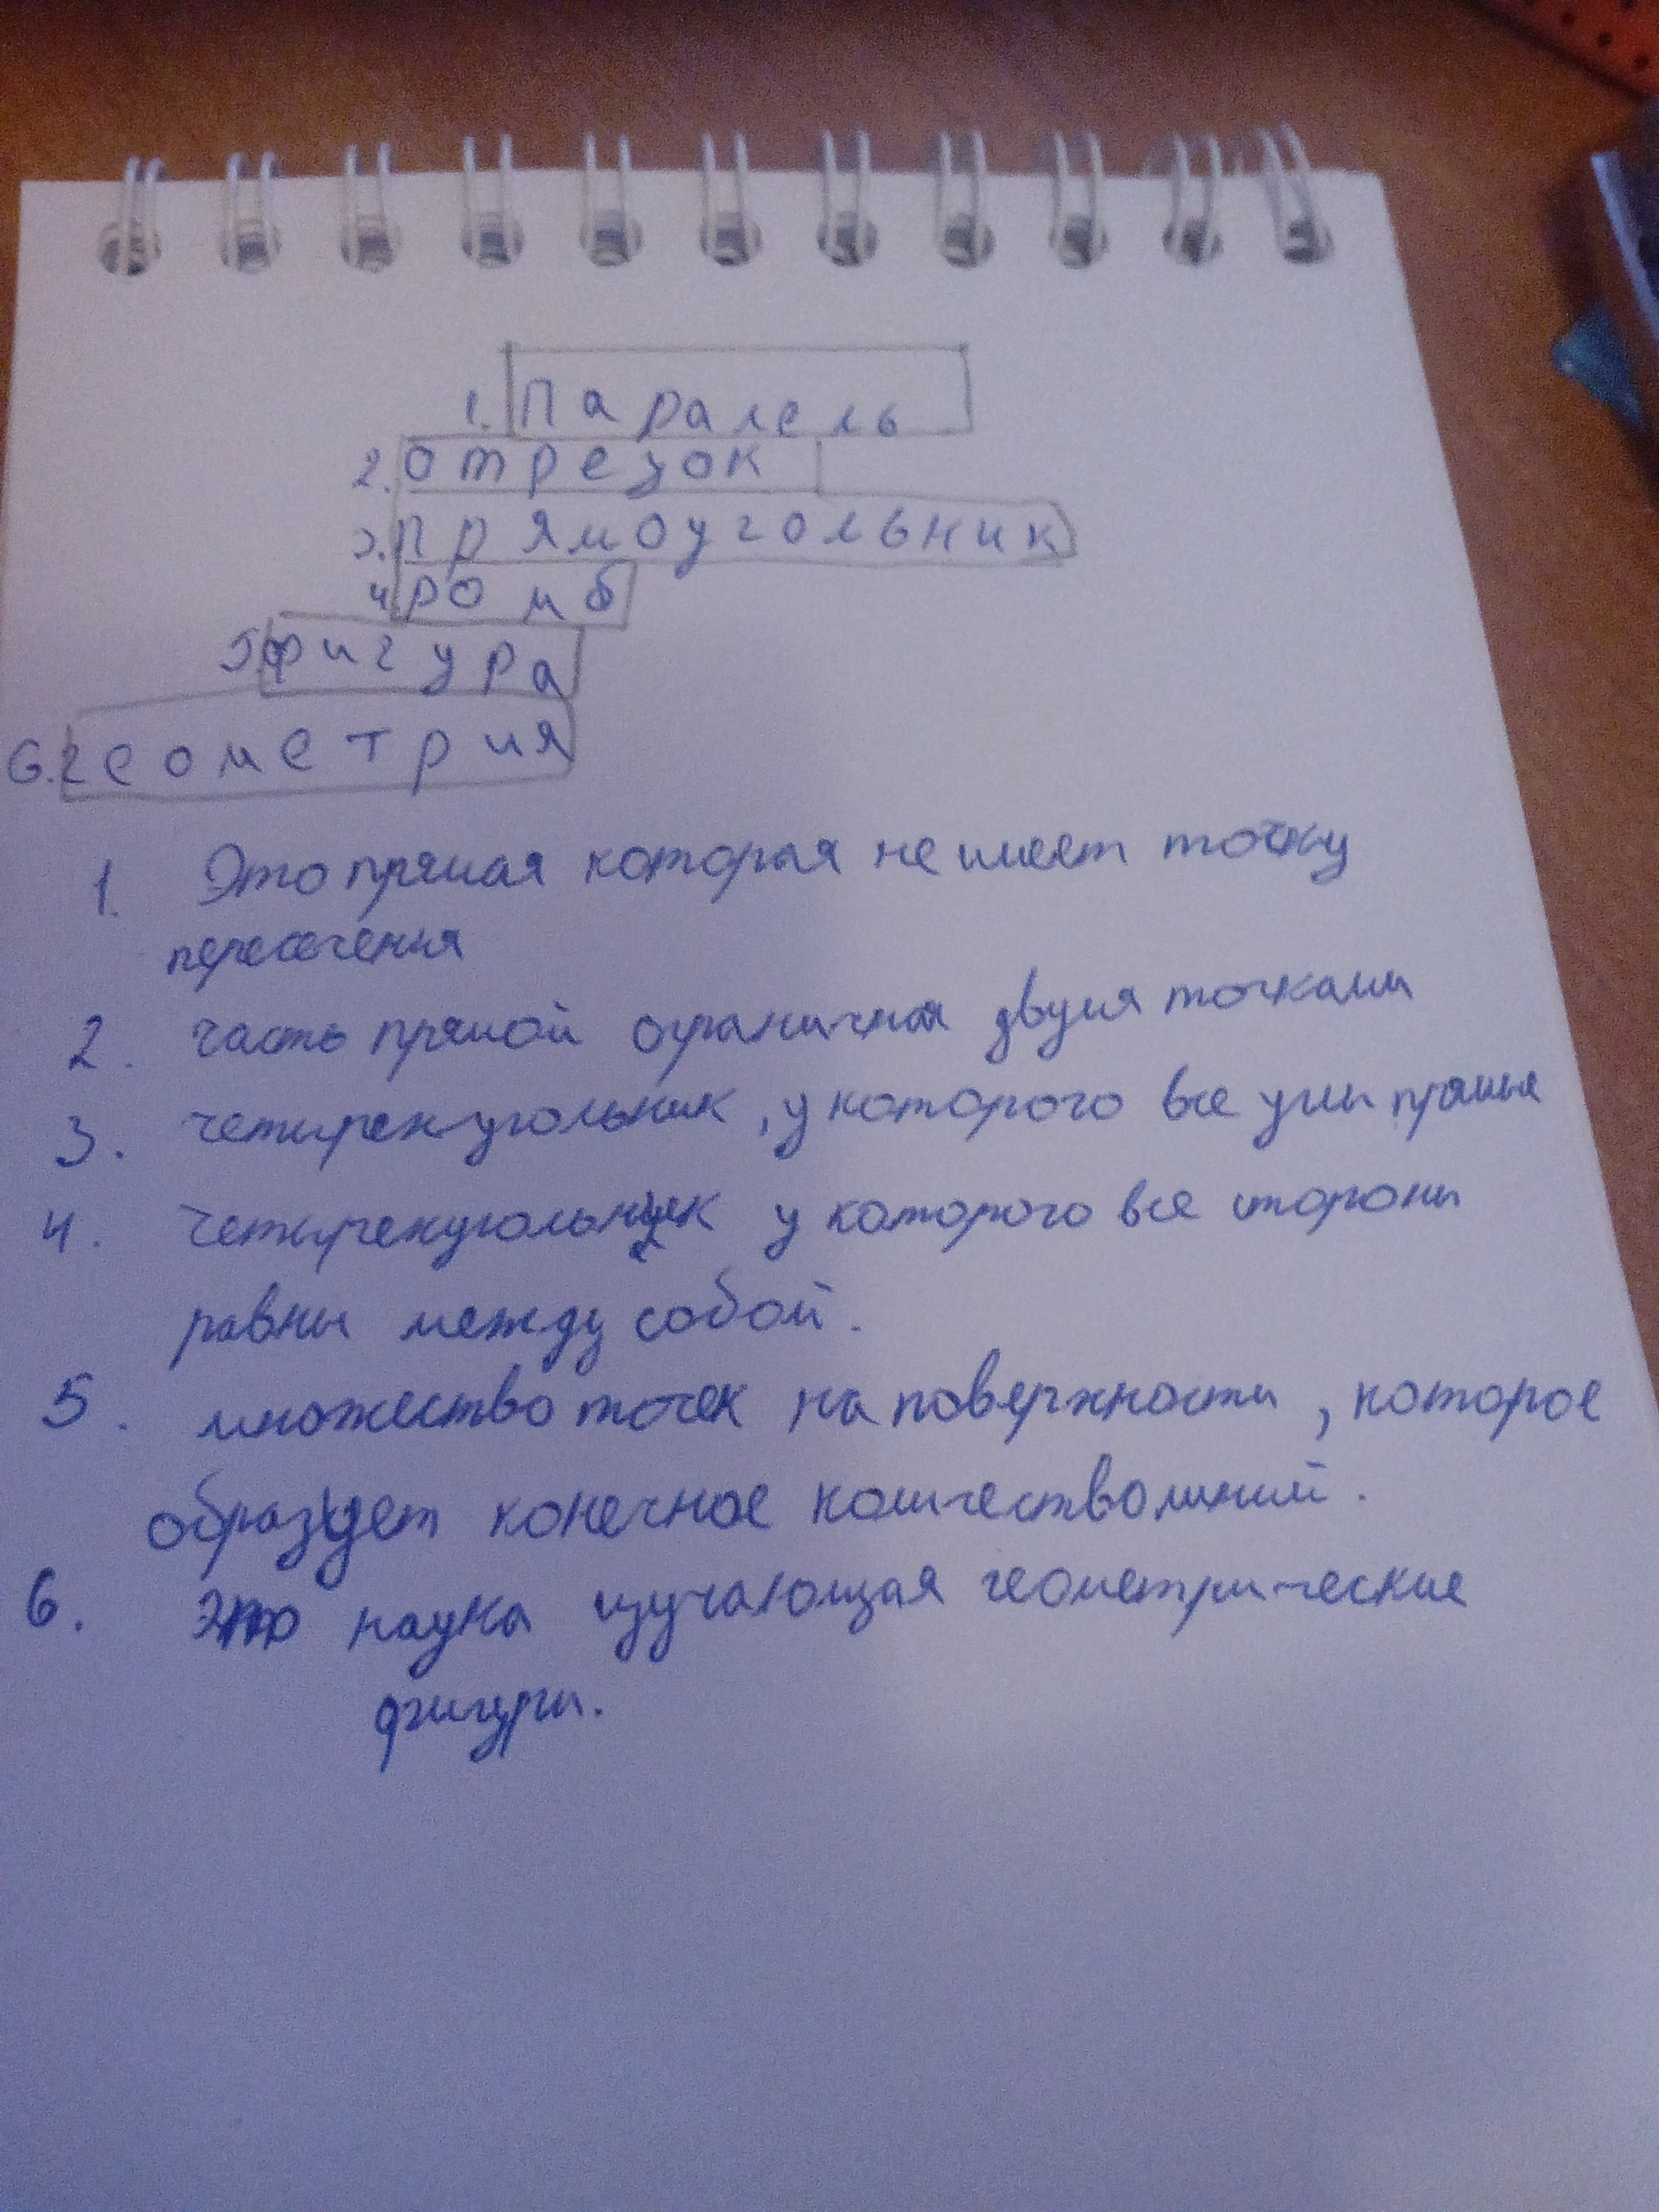 1. Паралель
2. отрезок
3. прямоугольник
4. ромб
5. фигура
6. геометрия
1. Это прямая которая не имеет точку
пересечения
2. часть прямой ограничная двумя точками
3. четырехугольник, у которого все углы прямые
4. четырехугольник у которого все стороны
равны между собой.
5. множество точек на поверхности, которое
образует конечное количество линий.
6. это наука изучающая геометрические
фигуры.